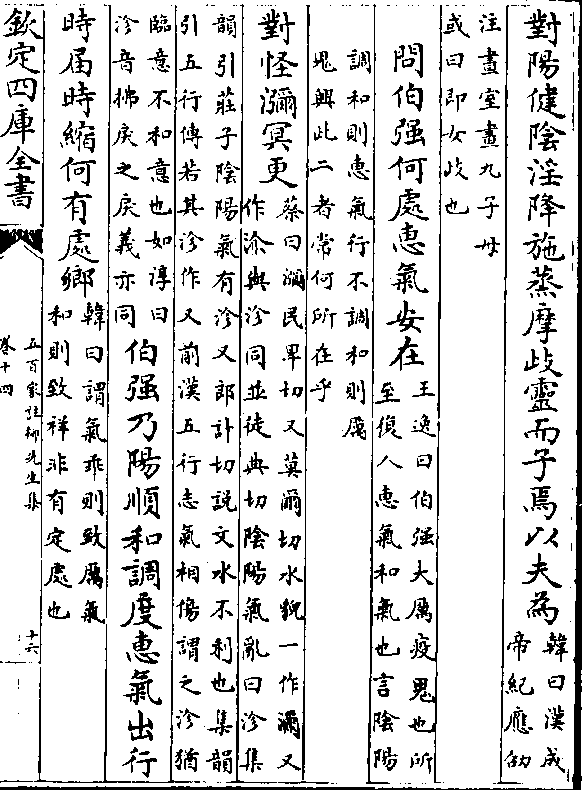 對陽健陰淫降施蒸摩歧靈而子焉以夫為韓曰漢成
帝紀應劭
注畫室畫九子母
或曰即女歧也
問伯强何處惠氣安在王逸曰伯强大厲疫鬼也所
至傷人惠氣和氣也言陰陽
調和則惠氣行不調和則厲
鬼興此二者常何所在乎
對怪瀰冥更蔡曰瀰民畀切又莫爾切水貌一作瀰又
作渿與沴同並徒典切陰陽氣亂曰沴集
韻引莊子陰陽氣有沴又郎計切說文水不利也集韻
引五行傳若其沴作又前漢五行志氣相傷謂之沴猶
臨意不和意也如淳曰
沴音拂戾之戾義亦同
伯强乃陽順和調度惠氣出行
時届時縮何有處鄉韓曰謂氣乖則致厲氣
和則致祥非有定處也
欽定四庫全書
五百家註柳先生集
卷十四
十六